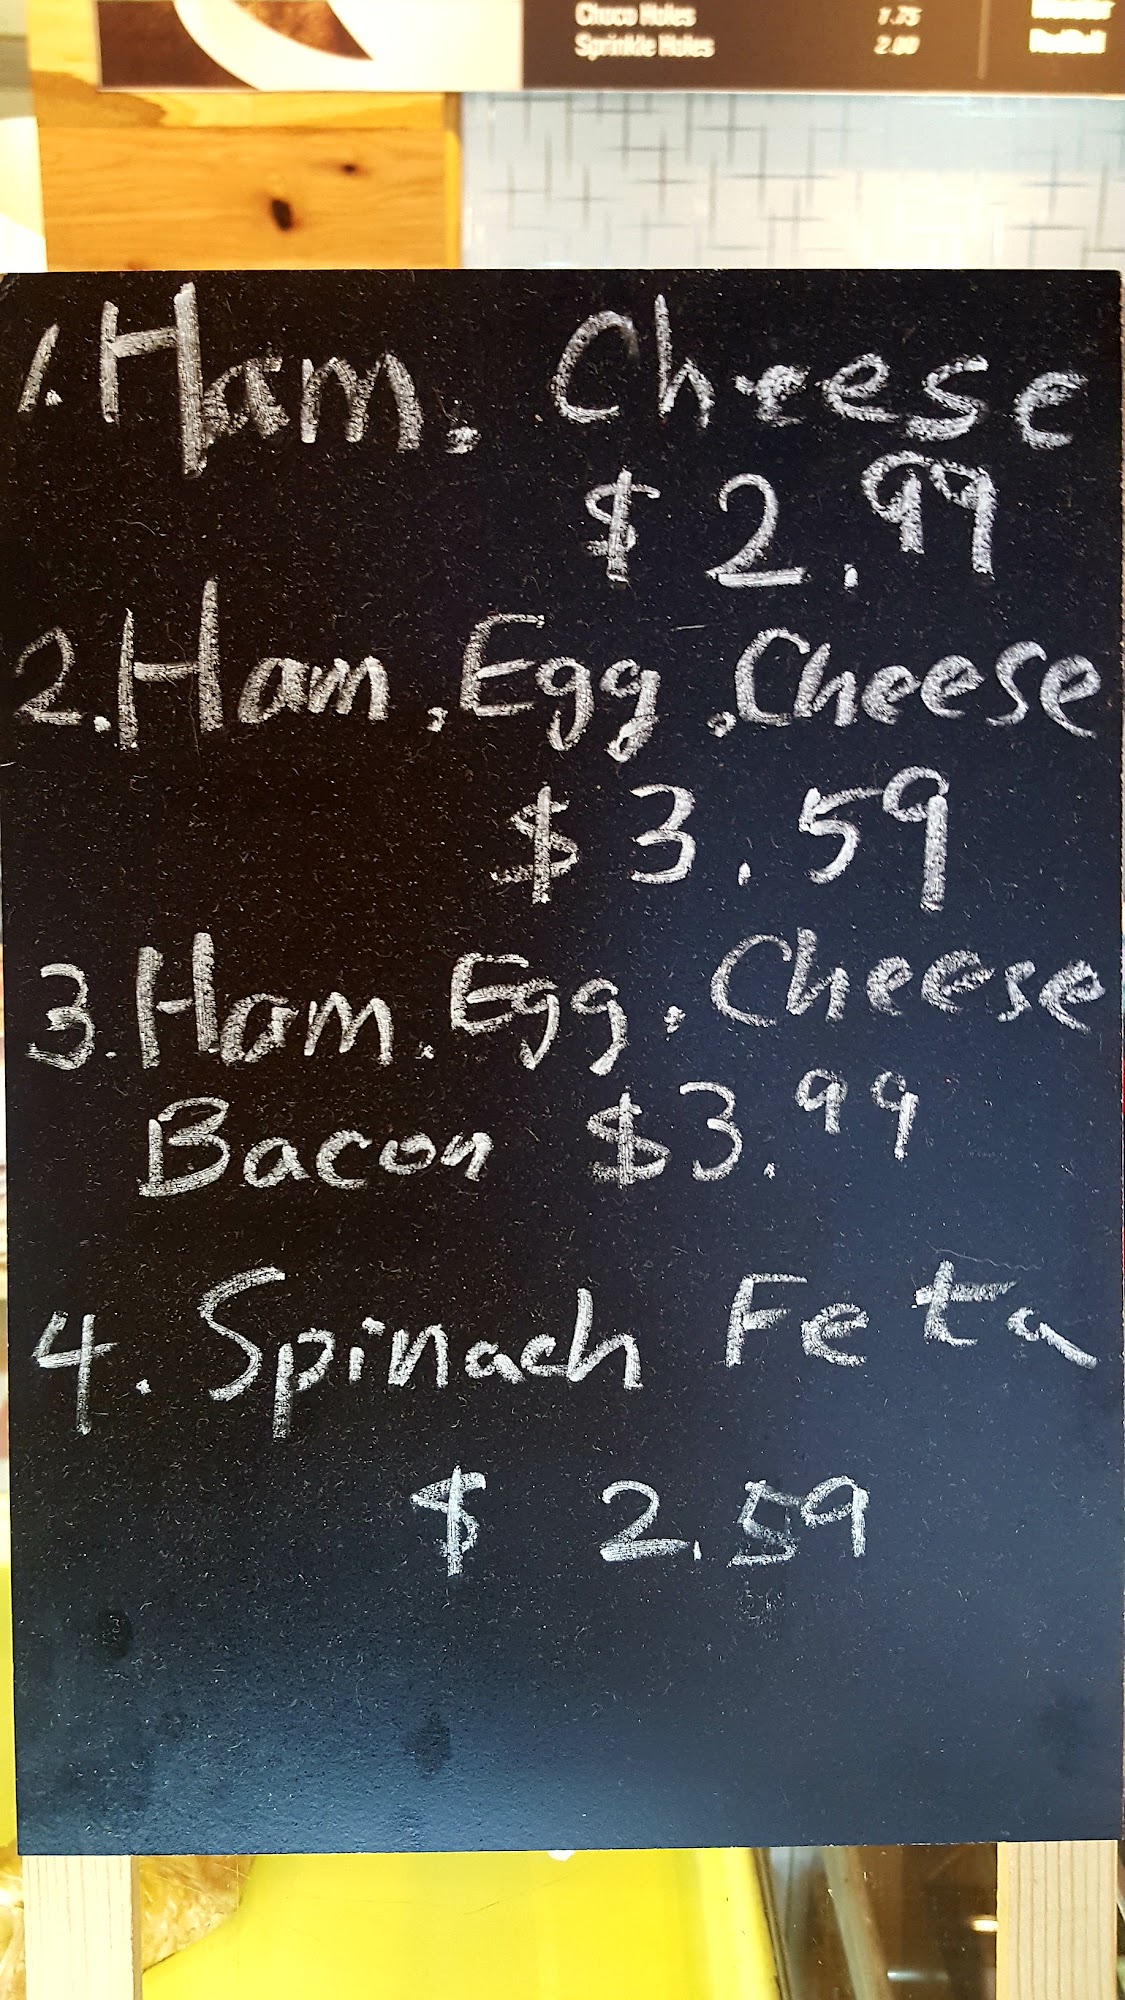 Choco Holes 1.75
Sprinkle Holes 2.00
RedBull
1. Ham. Cheese
$2.99
2. Ham. Egg. Cheese
$3.59
3. Ham. Egg. Cheese
Bacon $3.99
4. Spinach Feta
$2.59